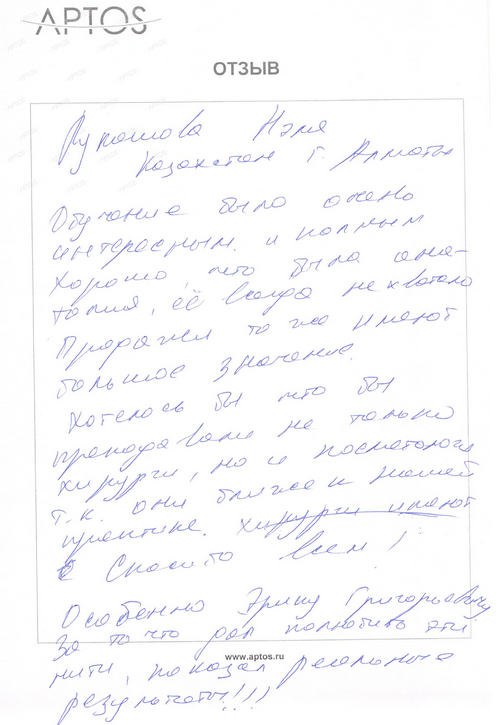 APTOS
ОТЗЫВ
Казахстан г. Алматы
Обучение было очень
интересным и полным
Хорошо, что была ана-
томия, её всегда не хватало
Продажи то же имеют
большое значение.
Хотелось бы что бы
преподавали не только
хирурги, но и косметологи
т.к. они ближе к нашей
практике. хирурги имеют
Спасибо всем!
Особенно Эрику Григорьевичу
За то что дал полюбить эти
нити, показал реальные
результаты!!!!
www.aptos.ru